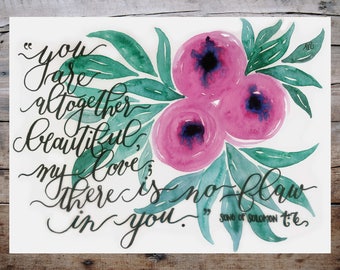 "you
are
altogether
beautiful,
my love;
there is no flaw
in you."
SONG OF SOLOMON 4:7